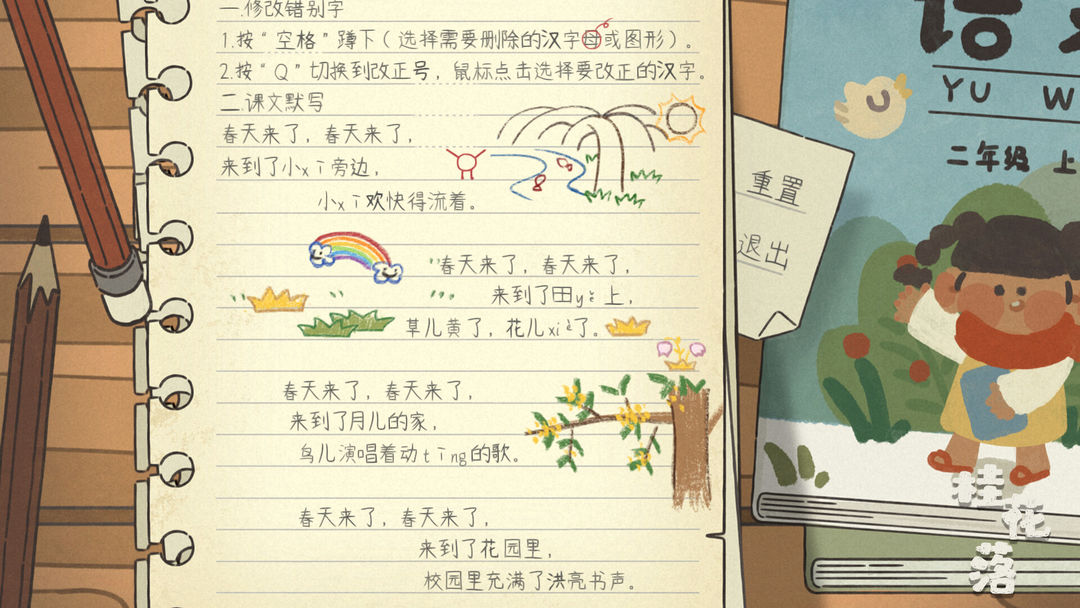 一.修改错别字
1.按“空格”蹲下（选择需要删除的汉字母或图形）。
2.按“Q”切换到改正号，鼠标点击选择要改正的汉字。
二.课文默写
春天来了，春天来了，
来到了小xī旁边，
小xī欢快得流着。
春天来了，春天来了，
来到了田yě上，
草儿黄了，花儿xiè了。
春天来了，春天来了，
来到了月儿的家，
鸟儿演唱着动tīng的歌。
春天来了，春天来了，
来到了花园里，
校园里充满了洪亮书声。
重置
退出
语
YU W
二年级 上
U
桂花落